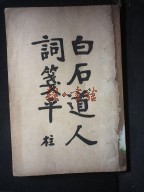 白石道人
詞箋平